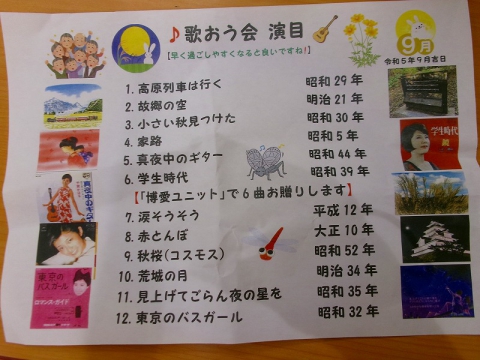 ♪歌おう会 演目
【早く過ごしやすくなると良いですね!】
9月
令和5年9月吉日
1. 高原列車は行く 昭和29年
2. 故郷の空 明治21年
3. 小さい秋見つけた 昭和30年
4. 家路 昭和5年
5. 真夜中のギター 昭和44年
6. 学生時代 昭和39年
【「博愛ユニット」で6曲お贈りします】
7. 涙そうそう 平成12年
8. 赤とんぼ 大正10年
9. 秋桜(コスモス) 昭和52年
10. 荒城の月 明治34年
11. 見上げてごらん夜の星を 昭和35年
12. 東京のバスガール 昭和32年
学生時代
真夜中のギター
東京の
バスガール